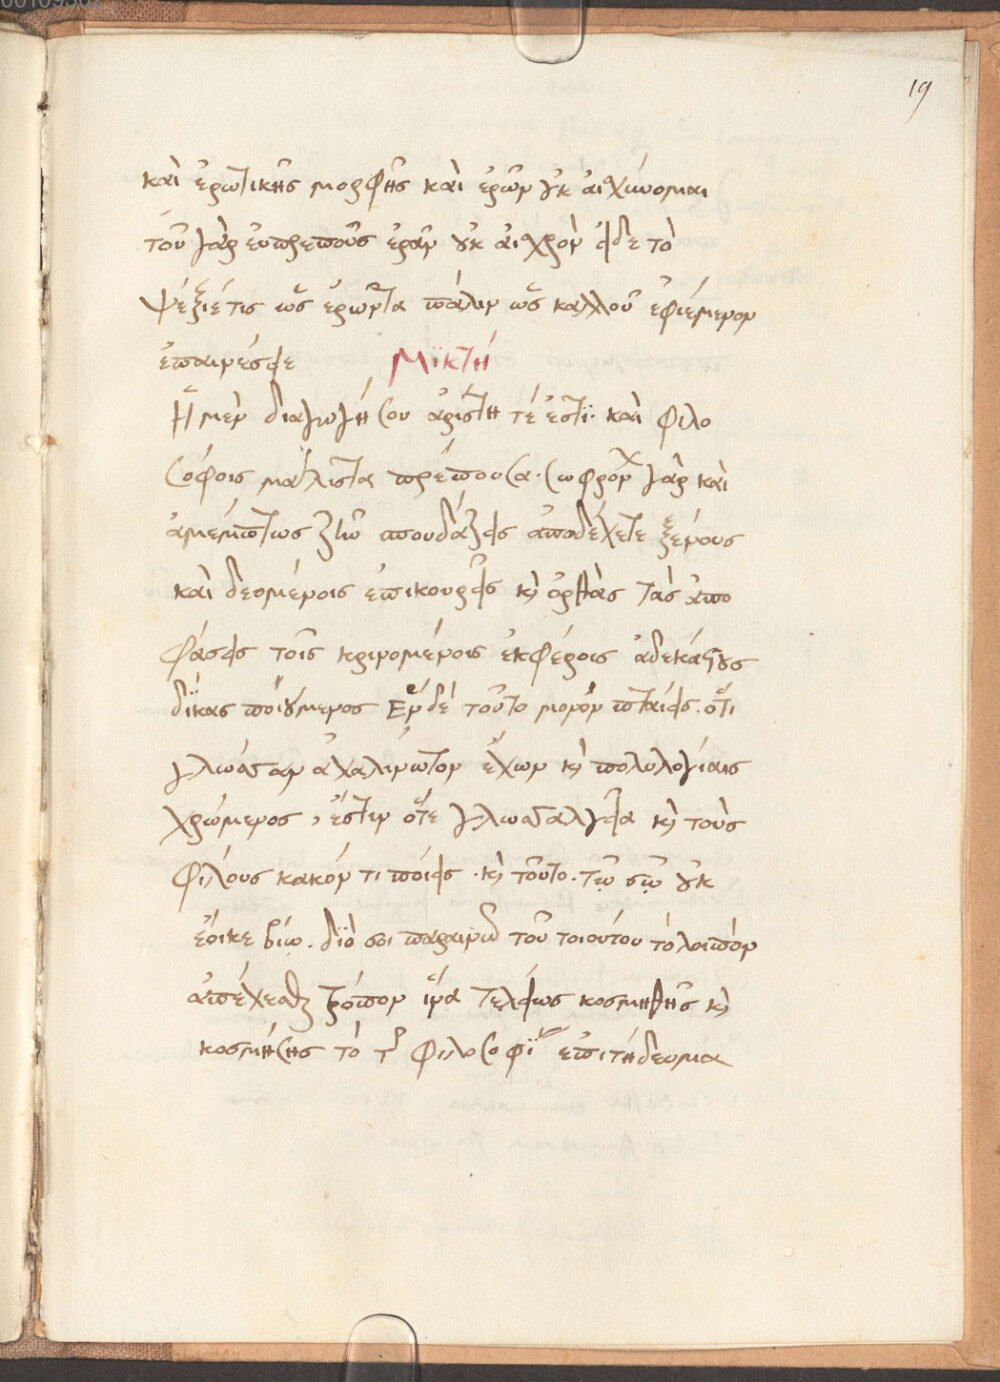 19
καὶ ἐρωτικῆς μορφῆς καὶ ἐρῶν οὐκ ἀισχύνομαι
τοῦ γὰρ ἐυπρεποῦς ἐρᾶν οὐκ ἀισχρὸν εἰδε τὸ
ψέξειέ τις ὡς ἐρῶντα πάλιν ὡς καλλοῦ ἐφιέμενον
ἐπαινέσει Μϊκτή
Ἡ μὲν διαγωγή σου ἀρίστη τέ ἐστϊ· καὶ φιλο
σόφοις μάλιστα πρέπουσα· σωφρόνως γὰρ καὶ
ἀμέμπτως ζῆν σπουδάζεις ἀποδέχετε ξένους
καὶ δεομένοις ἐπικουρεῖς κὴ ὀρθὰς τὰς ἀπο
φάσεις τοῖς κρινομένοις ἐκφέροις ἀδεκάστους
δίκας ποϊούμενος Ἐν δέ τοῦτο μονὸν πταίεις. ὅτι
γλῶσσαν ἀχαλίνωτον ἔχων κὴ πολυλογίαις
χρώμενος, ἔστιν ὅτε γλωσσαλγία κὴ τοὺς
φίλους κακόν τι ποίεις · κὴ τοῦτο · τῷ σῷ οὐκ
ἔοικε βίω. δϊό σοι παραινῶ τοῦ τοιούτου τὸ λοιπὸν
ἀπέχεσθαι τρόπον ἵνα τελείως κοσμηθῆς κὴ
κοσμήσης τὸ τῆς φιλοσοφΐας ἐπιτήδευμα